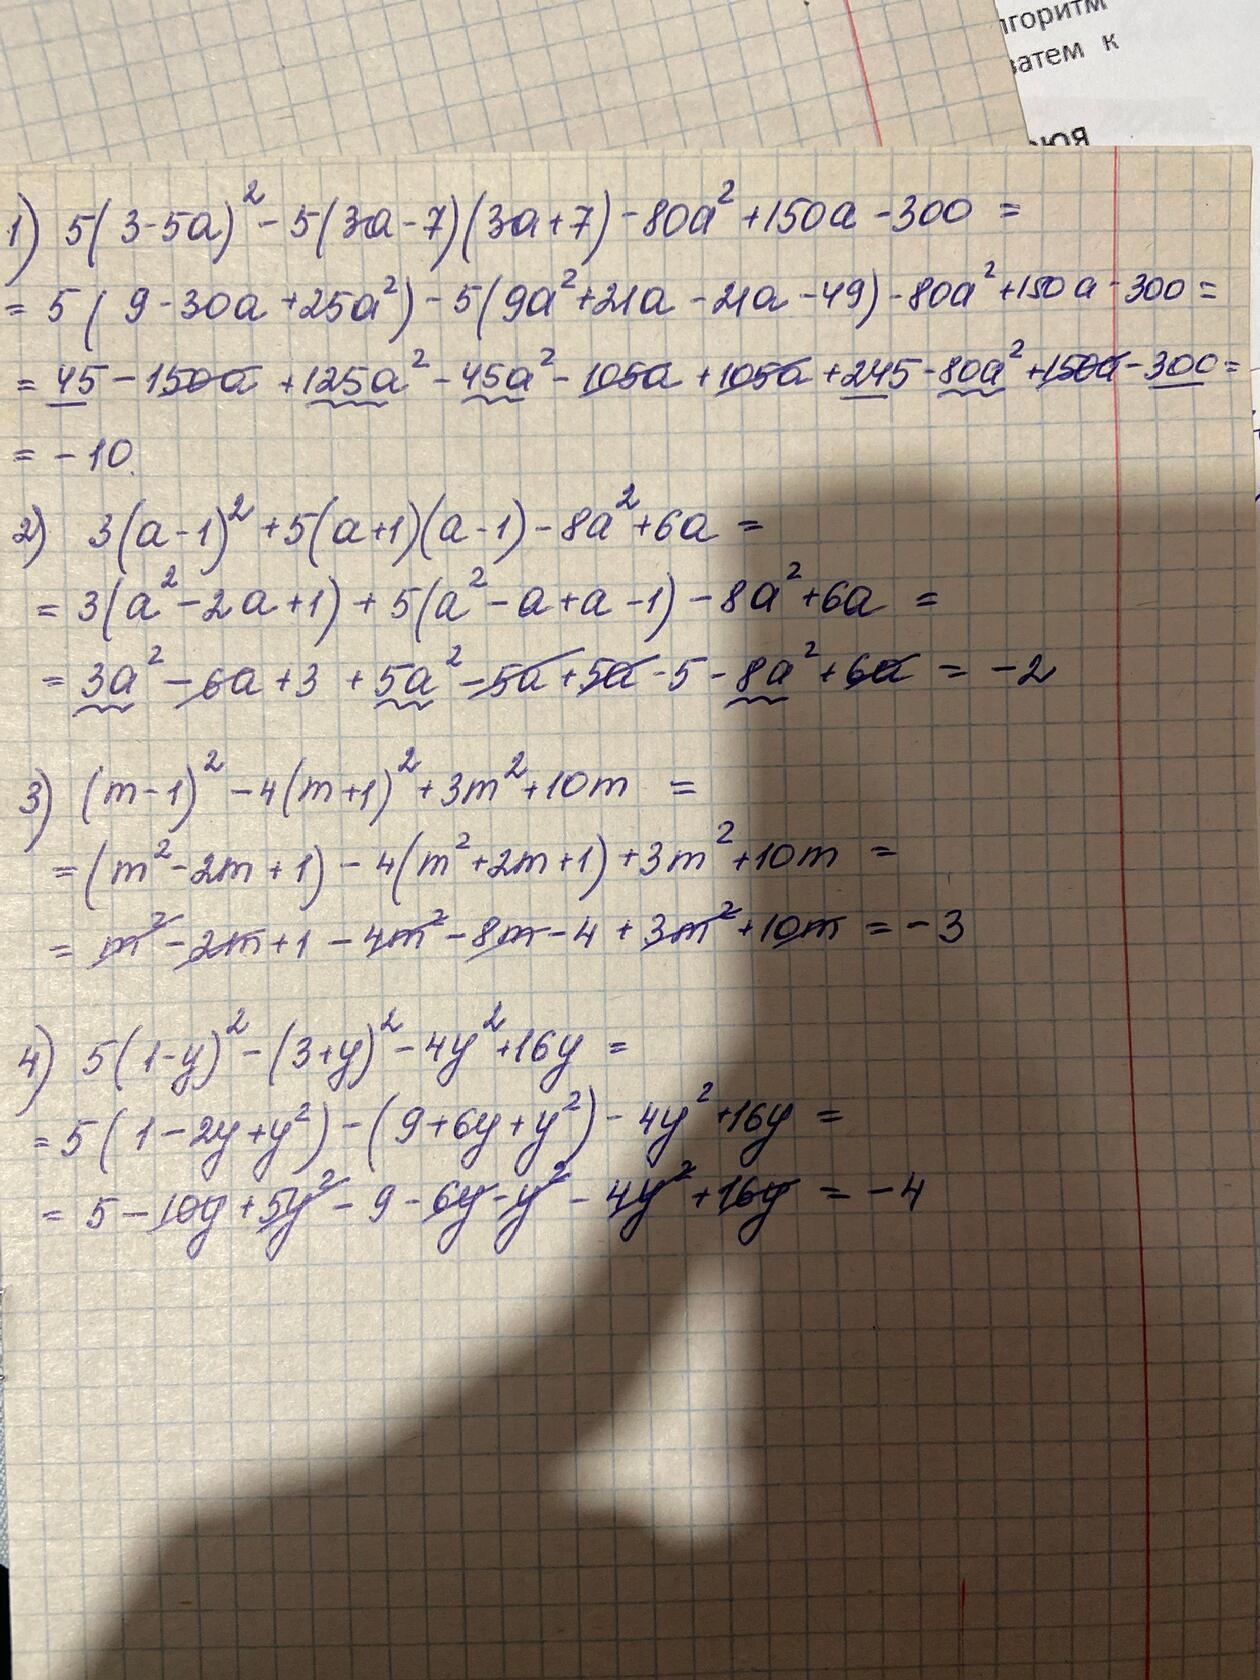 лгоритм
затем к
1) 5(3-5a)² - 5(3a-7)(3a+7) - 80a² + 150a - 300 =
= 5(9 - 30a + 25a²) - 5(9a² + 21a - 21a - 49) - 80a² + 150a - 300 =
= 45 - 150a + 125a² - 45a² - 105a + 105a + 245 - 80a² + 150a - 300 =
= -10.
2) 3(a-1)² + 5(a+1)(a-1) - 8a² + 6a =
= 3(a² - 2a + 1) + 5(a² - a + a - 1) - 8a² + 6a =
= 3a² - 6a + 3 + 5a² - 5a + 5a - 5 - 8a² + 6a = -2
3) (m-1)² - 4(m+1)² + 3m² + 10m =
= (m² - 2m + 1) - 4(m² + 2m + 1) + 3m² + 10m =
= m² - 2m + 1 - 4m² - 8m - 4 + 3m² + 10m = -3
4) 5(1-y)² - (3+y)² - 4y² + 16y =
= 5(1 - 2y + y²) - (9 + 6y + y²) - 4y² + 16y =
= 5 - 10y + 5y² - 9 - 6y - y² - 4y² + 16y = -4